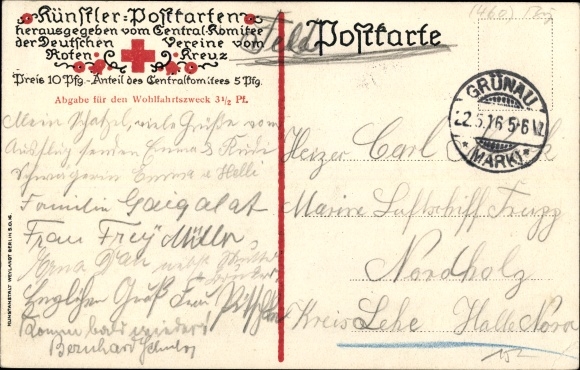 Künstler-Postkarten
herausgegeben vom Central-Komitee
der Deutschen Vereine vom
Roten Kreuz
Preis 10 Pfg.-Anteil des Centralkomitees 5 Pfg.
Abgabe für den Wohlfahrtszweck 3½ Pf.
Mein Schatzel, viele Grüße vom
Ausflug senden Emma &
Schwägerin Emma u Helli
Familie Gaigalat
Frau Frey Müller
Erna
Grüß Frau
Komm bald wieder
Bernhard
KUNSTANSTALT WEYLANDT BERLIN S.O. 16.
Feld
Postkarte
GRÜNAU
22.5.16 5-6 N.
* (MARK) *
Heizer Carl
Marine Luftschiff Trupp
Nordholz
Kreis Lehe Halle Nora
152